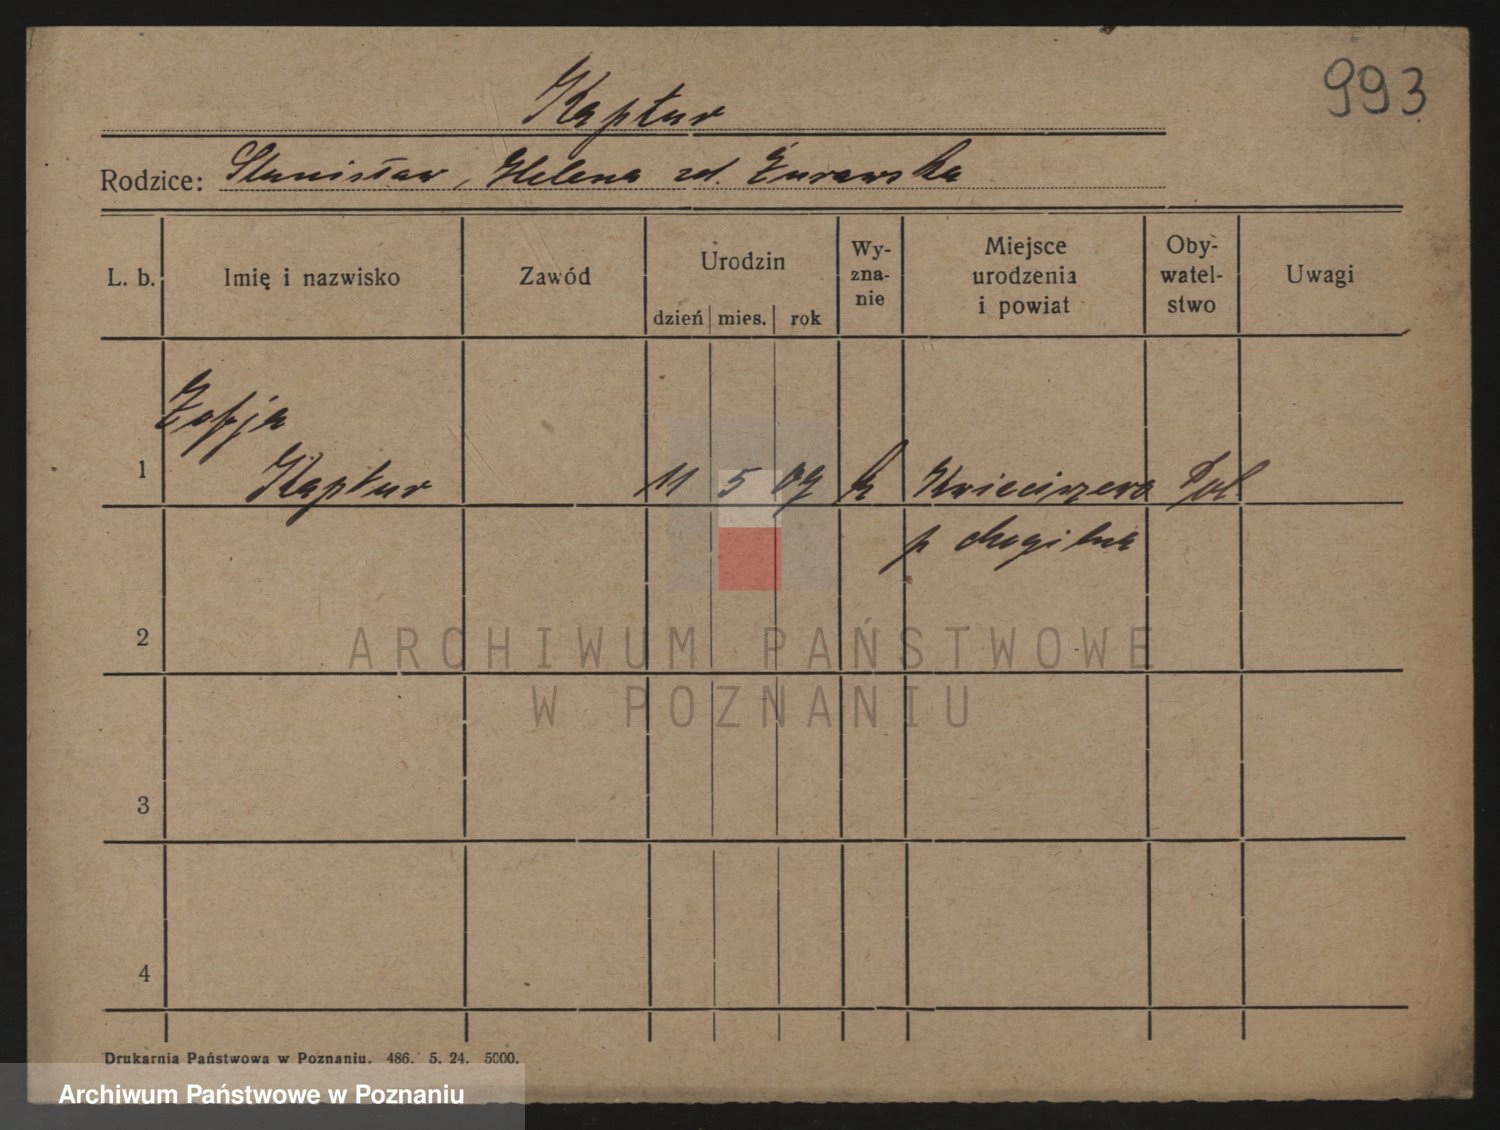 993
Kaptur
Rodzice: Stanisław, Helena zd. Żurawska
L. b. Imię i nazwisko Zawód Urodzin dzień mies. rok Wy-zna-nie Miejsce urodzenia i powiat Oby-watel-stwo Uwagi
Zofja
1 Kaptur 11 5 09 k Kwieciszewo Pol
p Mogilna
2
ARCHIWUM PAŃSTWOWE
W POZNANIU
3
4
Drukarnia Państwowa w Poznaniu. 486. 5. 24. 5000.
Archiwum Państwowe w Poznaniu